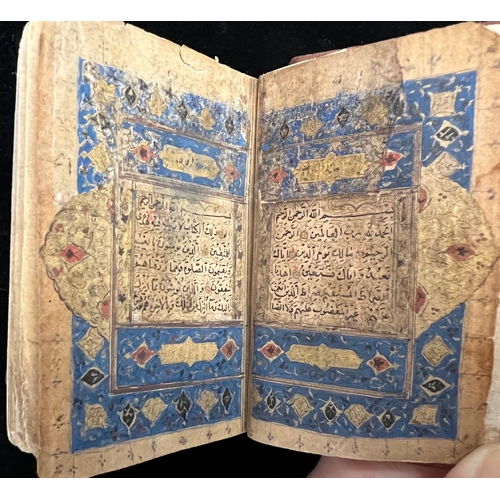 بسم الله الرحمن الرحيم
الحمد لله رب العالمين الرحمن
الرحيم مالك يوم الدين اياك
نعبد واياك نستعين اهدنا
الصراط المستقيم صراط الذين
غير المغضوب عليهم ولا الضا
بسم الله الرحمن الرحيم
الم ذلك الكتاب لا ريب فيه هدى
للمتقين الذين يؤمنون بالغيب
ويقيمون الصلوة ومما رزقناهم
ينفقون والذين يؤمنون بما انزل
اليك وما انزل من قبلك وبالاخرة هم